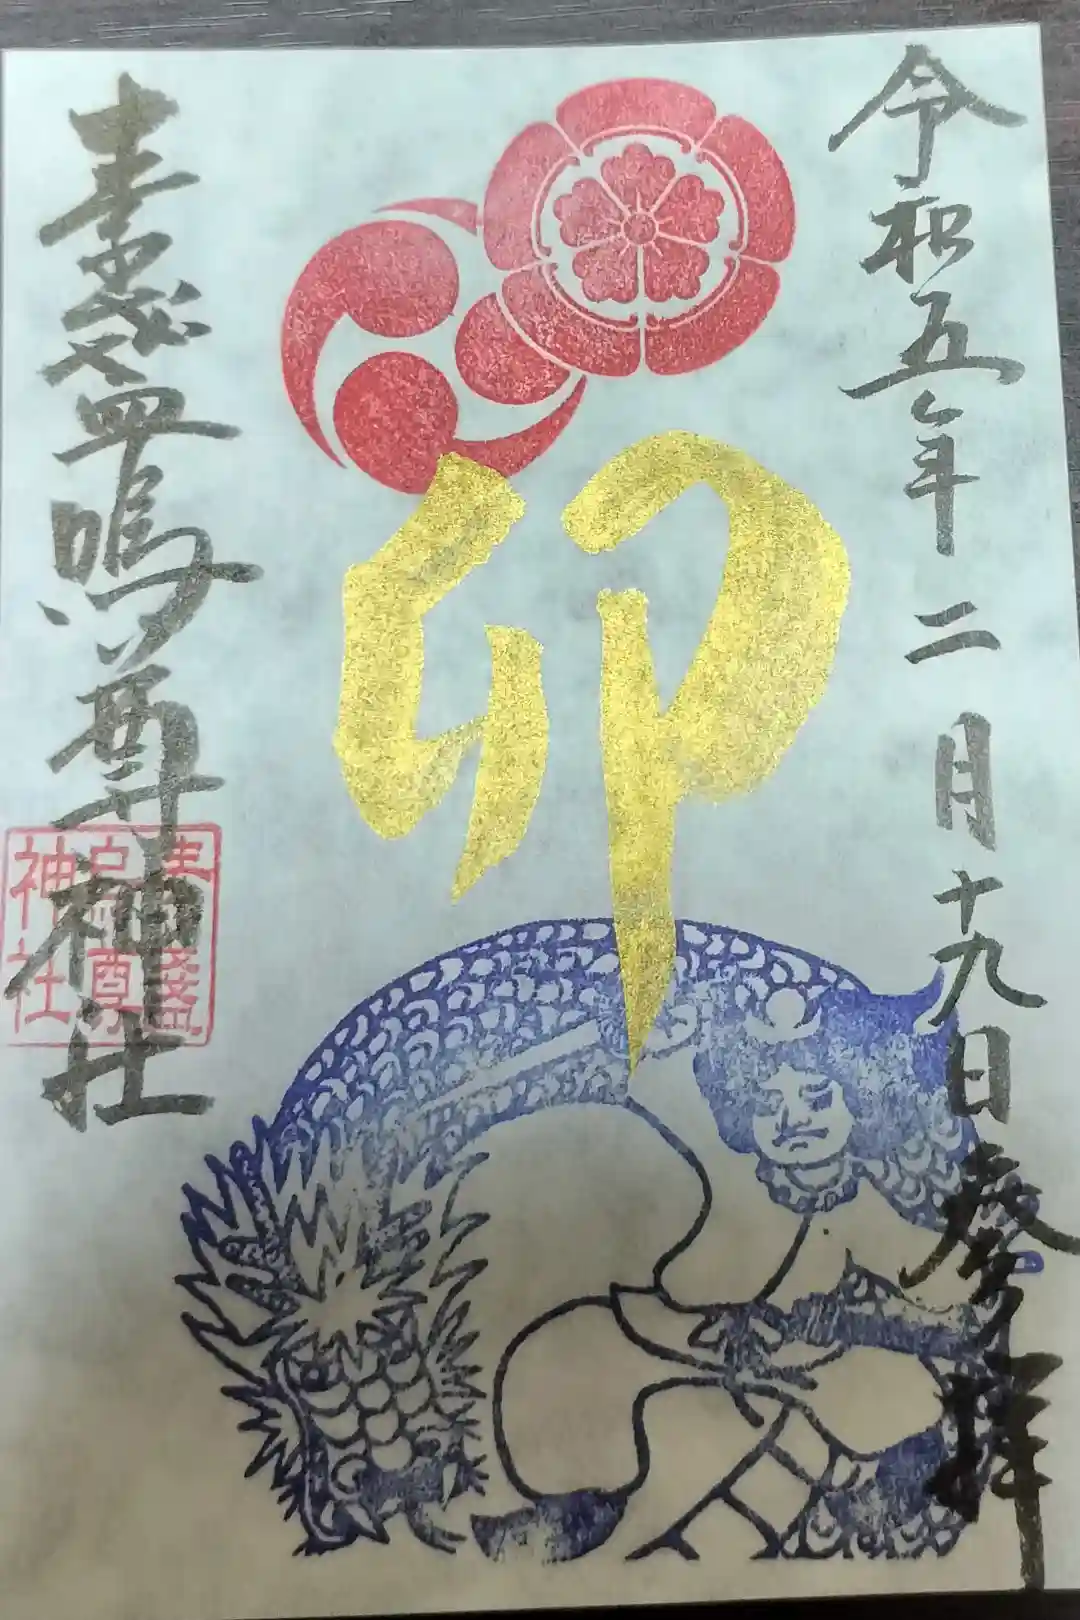 令和五年二月十九日参拝
卯
素盞嗚尊神社
素盞
嗚尊
神社